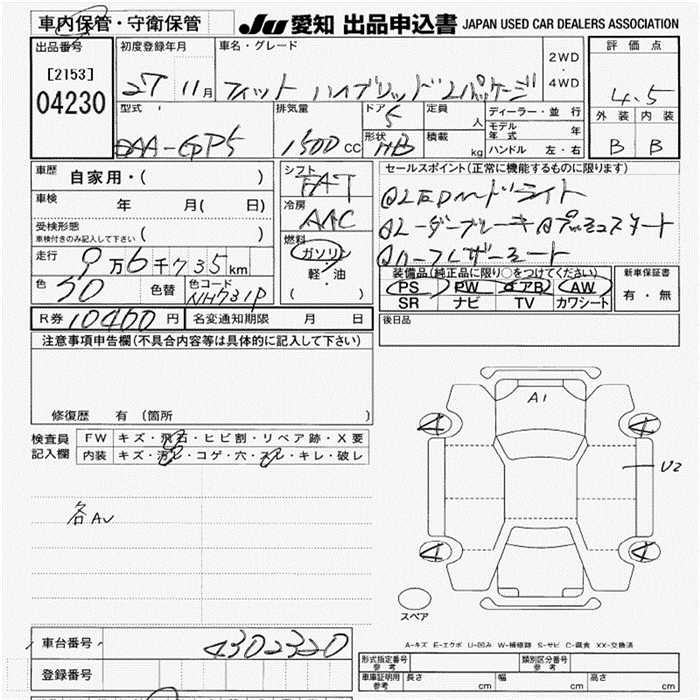 車内保管・守衛保管
JU 愛知 出品申込書 JAPAN USED CAR DEALERS ASSOCIATION
出品番号
[2153]
04230
初度登録年月
27 11月
車名・グレード
フィット ハイブリッド Lパッケージ
2WD
・
4WD
評価点
4.5
外装 内装
B B
型式
DAA-GP5
排気量
1500 CC
ドア
5
形状
HB
定員
人
積載
kg
ディーラー・並行
モデル年式 年
ハンドル 左・右
車歴
自家用・( )
車検
年 月( 日)
受検形態
車検付きのみ記入して下さい ( )
走行
9万6千735km
色
30
色替
色コード
NH731P
シフト
FAT
冷房
AAC
燃料
ガソリン
軽・油
( )
セールスポイント(正常に機能するものに限ります)
LEDヘッドライト
レーダーブレーキ プッシュスタート
ハーフレザーシート
装備品(純正品に限り○をつけてください)
PS PW エアB AW
SR ナビ TV カワシート
新車保証書
有・無
R券 10400円
名変通知期限 月 日
後日品
注意事項申告欄(不具合内容等は具体的に記入して下さい)
修復歴 有(箇所 )
検査員
記入欄
FW キズ・飛石・ヒビ割・リペア跡・X要
内装 キズ・汚レ・コゲ・穴・スレ・キレ・破レ
各AU
A1
U2
4
4
4
4
スペア
A-キズ E-エクボ U-凹み W-補修跡 S-サビ C-腐食 XX-交換済
車台番号
4302320
登録番号
形式指定番号
参考
類別区分番号
参考
車庫証明用
参考
長さ cm
幅 cm
高さ cm